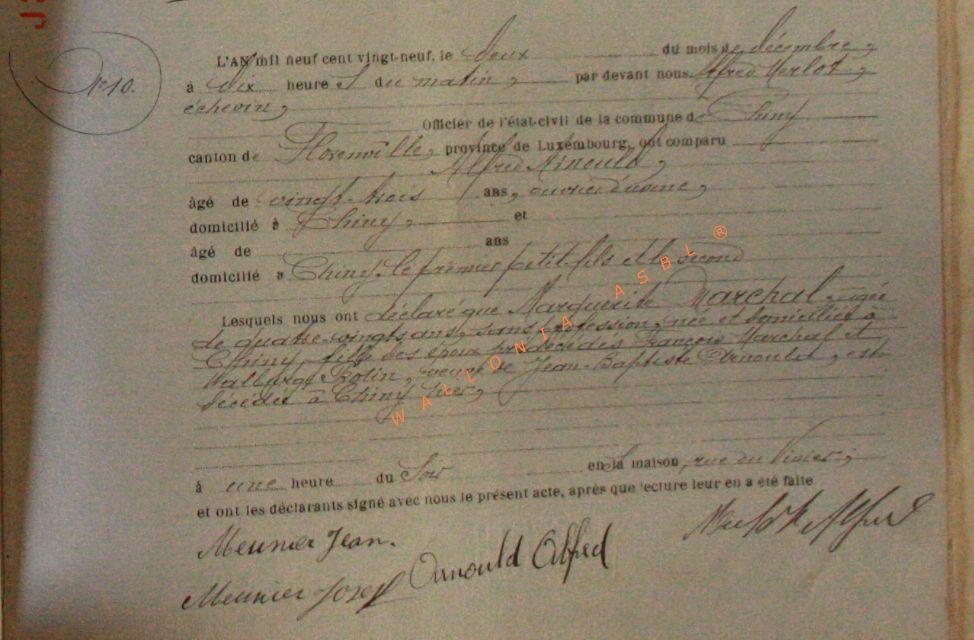 N° 10.
L'AN mil neuf cent vingt-neuf, le deux du mois de décembre,
à dix heure s du matin, par devant nous Alfred Merlot,
échevin,
Officier de l'état-civil de la commune de Chiny
canton de Florenville, province de Luxembourg, ont comparu
Alfred Arnould,
âgé de vingt-trois ans, ouvrier d'usine,
domicilié à Chiny, et
âgé de ans
domicilié à Chiny, le premier petit-fils et le second
Lesquels nous ont déclaré que Marguerite Marchal, âgée
de quatre-vingts ans, sans profession, née et domiciliée à
Chiny, fille des époux prédécédés François Marchal et
Walburge Rolin, veuve de Jean-Baptiste Arnould, est
décédée à Chiny hier,
à une heure du soir en la maison, rue du Vivier,
et ont les déclarants signé avec nous le présent acte, après que lecture leur en a été faite
Meunier Jean.
Arnould Alfred
Meunier Josef
WALLONIA ASBL ®